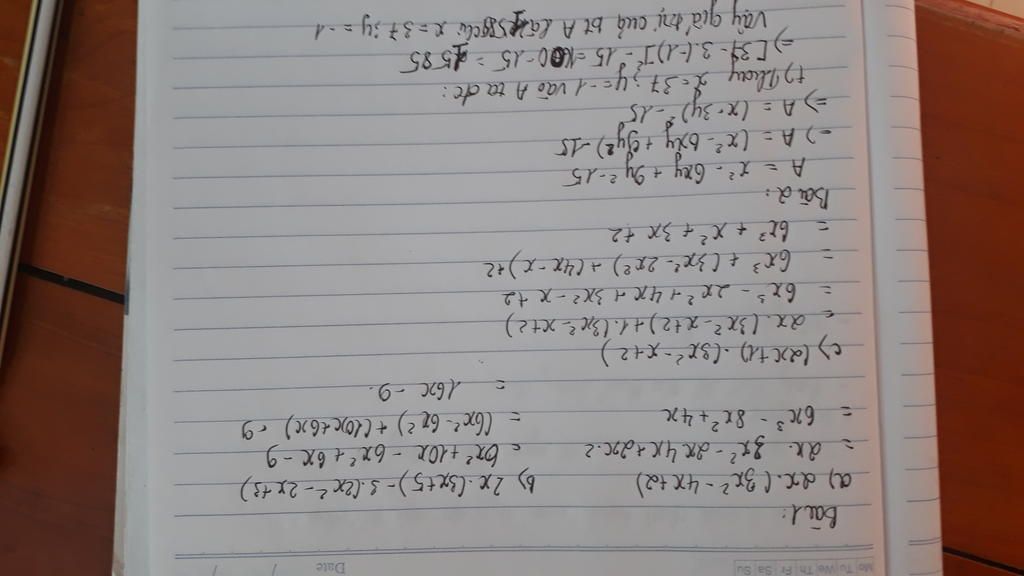 Mo Tu We Th Fr Sa Su
Date / /
Bài 1:
a) 2x.(3x² - 4x + 2)
= 2x. 3x² - 2x 4x + 2x.2
= 6x³ - 8x² + 4x
b) 2x.(3x+5) - 3.(2x² - 2x + 3)
= 6x² + 10x - 6x² + 6x - 9
= (6x² - 6x²) + (10x + 6x) - 9
= 16x - 9.
c) (2x+1).(3x² - x + 2)
= 2x.(3x² - x + 2) + 1.(3x² - x + 2)
= 6x³ - 2x² + 4x + 3x² - x + 2
= 6x³ + (3x² - 2x²) + (4x - x) + 2
= 6x³ + x² + 3x + 2
Bài 2:
A = x² - 6xy + 9y² - 15
=) A = (x² - 6xy + 9y²) - 15
=) A = (x - 3y)² - 15
+) Thay x = 37; y = -1 vào A ta đc:
=) [37 - 3.(-1)]² - 15 = 1600 - 15 = 1585
Vậy giá trị của bt A là 1585 khi x = 37; y = -1